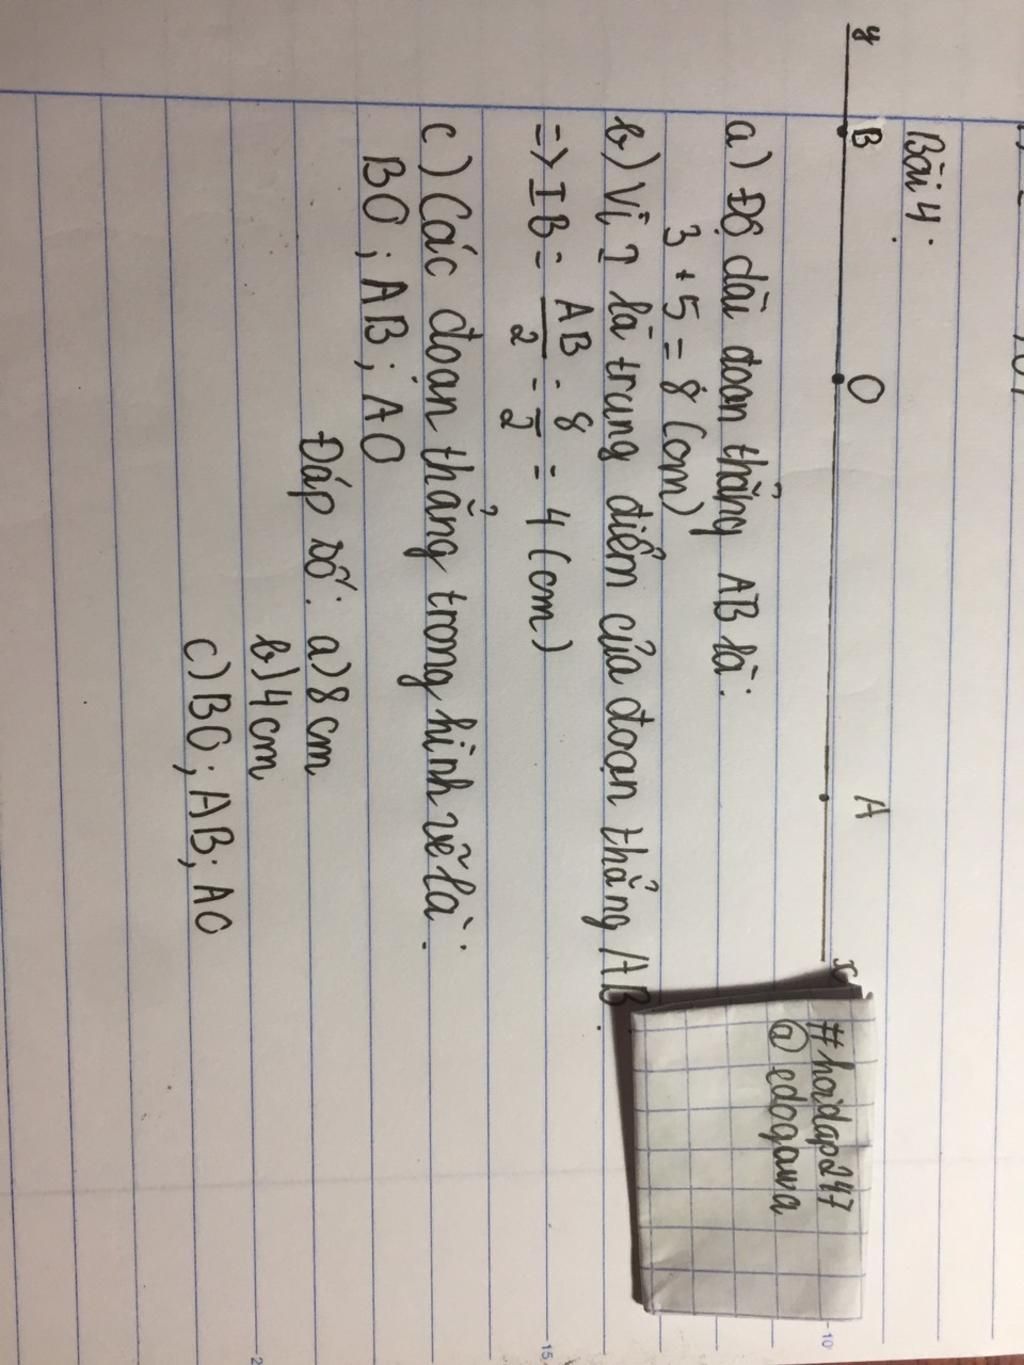 Bài 4:
y B O A x
#hoidap247
@edogawa
a) Độ dài đoạn thẳng AB là:
3 + 5 = 8 (cm)
b) Vì I là trung điểm của đoạn thẳng AB.
=> IB = AB/2 = 8/2 = 4 (cm)
c) Các đoạn thẳng trong hình vẽ là:
BO; AB; AO
Đáp số: a) 8 cm
b) 4 cm
c) BO; AB; AO
10
15
2